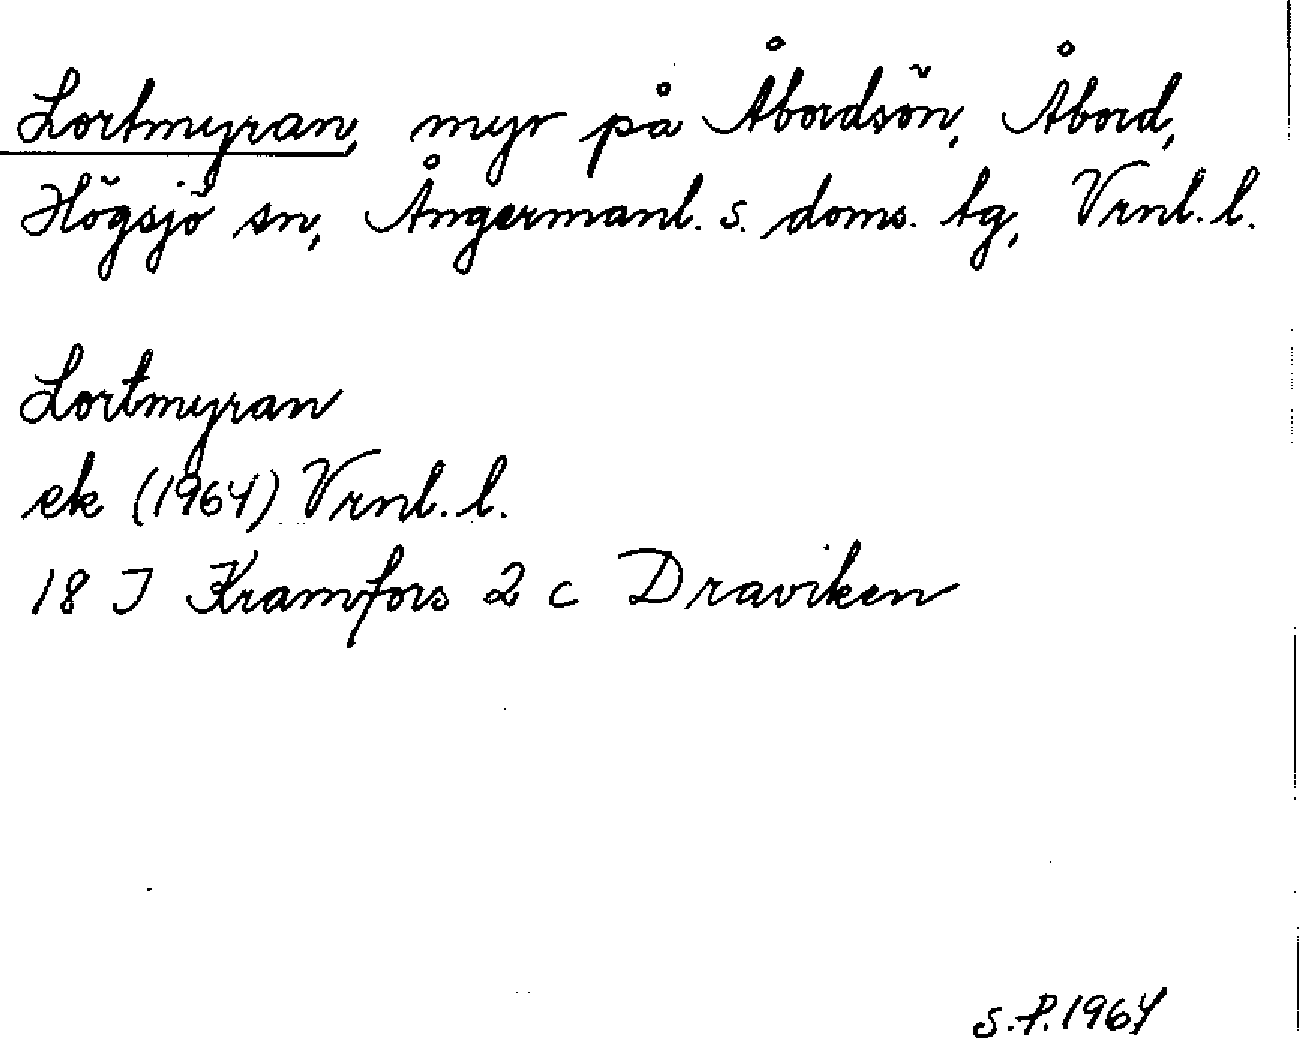 Lortmyran, myr på Åbordsön, Åbord,
Högsjö sn, Ångermanl. s. doms. tg, Vrnl. l.
Lortmyran
ek (1964) Vrnl. l.
18 J Kramfors 2 c Draviken
S.P. 1964